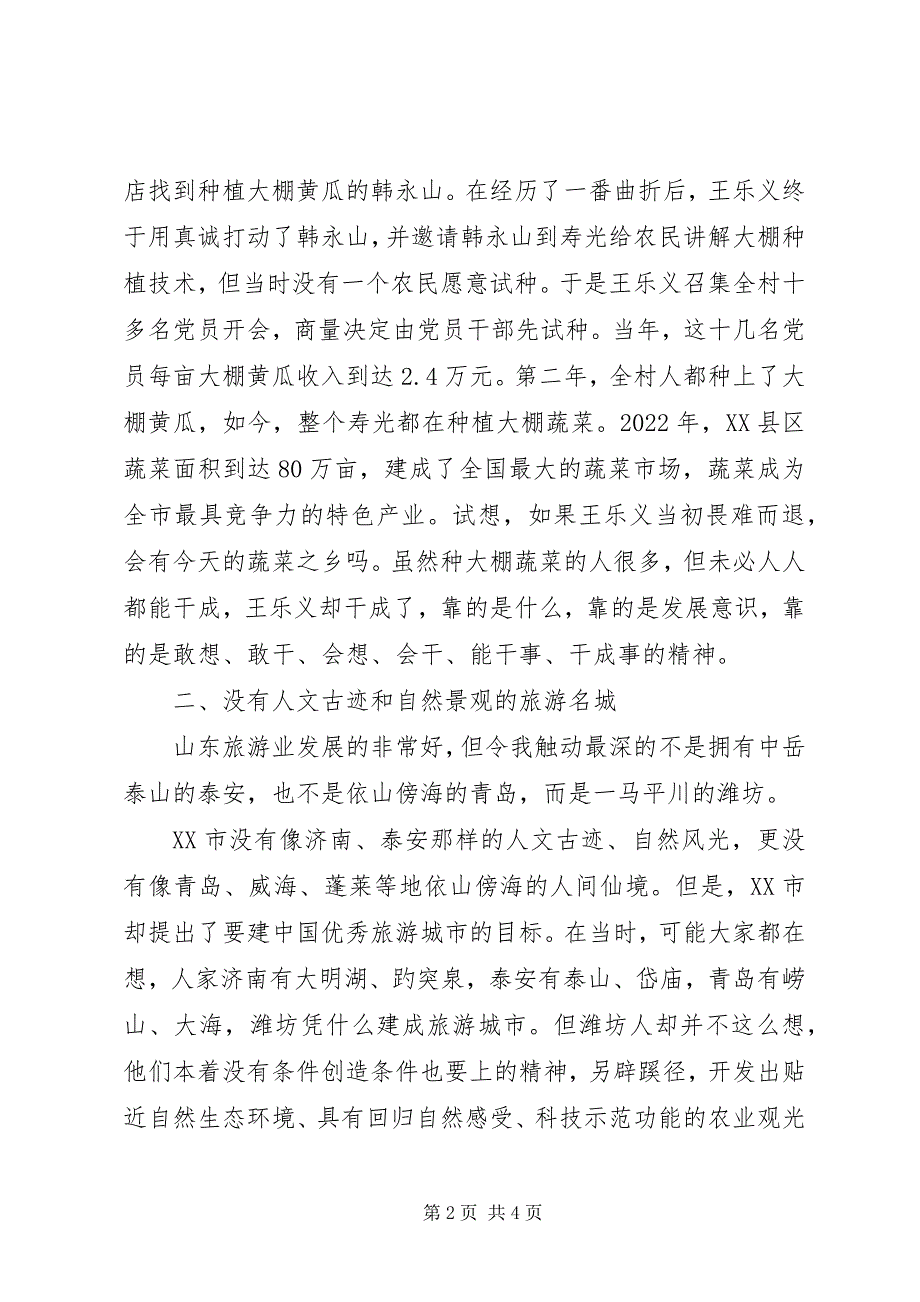 店找到种植大棚黄瓜的韩永山。在经历了一番曲折后，王乐义终
于用真诚打动了韩永山，并邀请韩永山到寿光给农民讲解大棚种
植技术，但当时没有一个农民愿意试种。于是王乐义召集全村十
多名党员开会，商量决定由党员干部先试种。当年，这十几名党
员每亩大棚黄瓜收入到达 2.4 万元。第二年，全村人都种上了大
棚黄瓜，如今，整个寿光都在种植大棚蔬菜。2022 年，XX 县区
蔬菜面积到达 80 万亩，建成了全国最大的蔬菜市场，蔬菜成为
全市最具竞争力的特色产业。试想，如果王乐义当初畏难而退，
会有今天的蔬菜之乡吗。虽然种大棚蔬菜的人很多，但未必人人
都能干成，王乐义却干成了，靠的是什么，靠的是发展意识，靠
的是敢想、敢干、会想、会干、能干事、干成事的精神。
二、没有人文古迹和自然景观的旅游名城
山东旅游业发展的非常好，但令我触动最深的不是拥有中岳
泰山的泰安，也不是依山傍海的青岛，而是一马平川的潍坊。
XX 市没有像济南、泰安那样的人文古迹、自然风光，更没
有像青岛、威海、蓬莱等地依山傍海的人间仙境。但是，XX 市
却提出了要建中国优秀旅游城市的目标。在当时，可能大家都在
想，人家济南有大明湖、趵突泉，泰安有泰山、岱庙，青岛有崂
山、大海，潍坊凭什么建成旅游城市。但潍坊人却并不这么想，
他们本着没有条件创造条件也要上的精神，另辟蹊径，开发出贴
近自然生态环境、具有回归自然感受、科技示范功能的农业观光
第 2 页 共 4 页